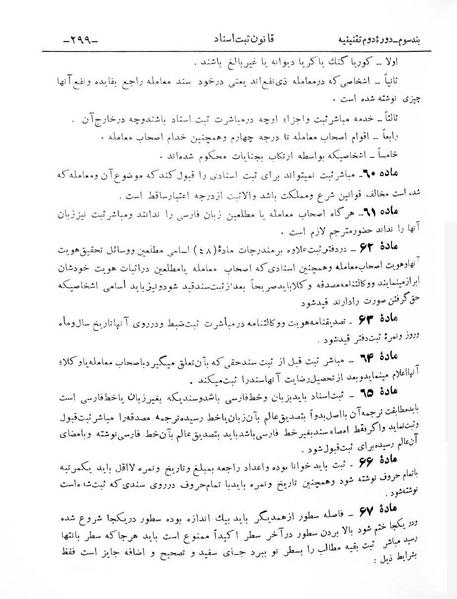 بندسوم_دورۀ دوم تقنینیه قانون ثبت اسناد -۲۹۹-
اولا _ کور یا گنك یا کر یا دیوانه یا غیر بالغ باشند .
ثانیاً _ اشخاصی که در معامله ذی‌نفع‌اند یعنی در خود سند معامله راجع بفایده و نفع آنها
چیزی نوشته شده است .
ثالثاً _ خدمه مباشر ثبت و اجزاء او چه در مباشرت ثبت اسناد باشند و چه در خارج آن .
رابعاً _ اقوام اصحاب معامله تا درجه چهارم و همچنین خدام اصحاب معامله .
خامساً _ اشخاصیکه بواسطه ارتکاب بجنایات محکوم شده‌اند .
مادۀ ۶۰_ مباشر ثبت نمیتواند برای ثبت اسنادی را قبول کند که موضوع آن ومعامله که
شده است مخالف قوانین شرع و مملکت باشد والا ثبت از درجه اعتبار ساقط است .
مادۀ ۶۱_ هر گاه اصحاب معامله یا مطلعین زبان فارسی را ندانند و مباشر ثبت نیز زبان
آنها را نداند حضور مترجم لازم است .
مادۀ ۶۲ _ در دفتر ثبت علاوه بر مندرجات مادۀ (۴۸) اسامی مطلعین ووسائل تحقیق هویت
آنها وهویت اصحاب معامله وهمچنین اسنادی که اصحاب معامله یا مطلعین در اثبات هویت خودشان
ابراز مینمایند ووکالتنامه مصدقه وکلا باید صریحاً بعد از ثبت سند قید شود و نیز باید أسامی اشخاصیکه
حق گرفتن صورت را دارند قید شود
مادۀ ۶۳ _ تصدیقنامه هویت و وکالتنامه در مباشرت ثبت ضبط و در روی آنها تاریخ سال و ماه
و روز و نمرۀ ثبت دفتر قید شود .
مادۀ ۶۴ _ مباشر ثبت قبل از ثبت سند حقی که بآن تعلق میگیرد باصحاب معامله یا وکلاء
آنها اعلام مینماید و بعد از تحصیل رضایت آنها سند را ثبت میکند .
مادۀ ۶۵ _ ثبت اسناد باید بزبان و خط فارسی باشد و سندیکه بغیر زبان یا خط فارسی است
باید مطابقت ترجمه آن با اصل بدواً بتصدیق عالم بآن زبان یا خط رسیده ترجمه مصدقه را مباشر ثبت قبول
و ثبت نماید و اگر فقط امضاء سند بغیر خط فارسی باشد باید بتصدیق عالم بآن خط فارسی نوشته و بامضای
آن عالم رسیده برای ثبت قبول شود .
مادۀ ۶۶ _ ثبت باید خوانا بوده و اعداد راجعه بمبلغ و تاریخ و نمره لااقل باید یکمرتبه
با تمام حروف نوشته شود و همچنین تاریخ و نمره باید با تمام حروف در روی سندی که ثبت شده است
نوشته شود .
مادۀ ۶۷ _ فاصله سطور از همدیگر باید بیك اندازه بوده سطور در یکجا شروع شده
و در یکجا ختم شود بالا بردن سطور در آخر سطر اکیداً ممنوع است باید هر جا که سطر بانتها
رسید مباشر ثبت بقیه مطالب را بسطر نو ببرد جای سفید و تصحیح و اضافه جایز است فقط
بشرایط ذیل :